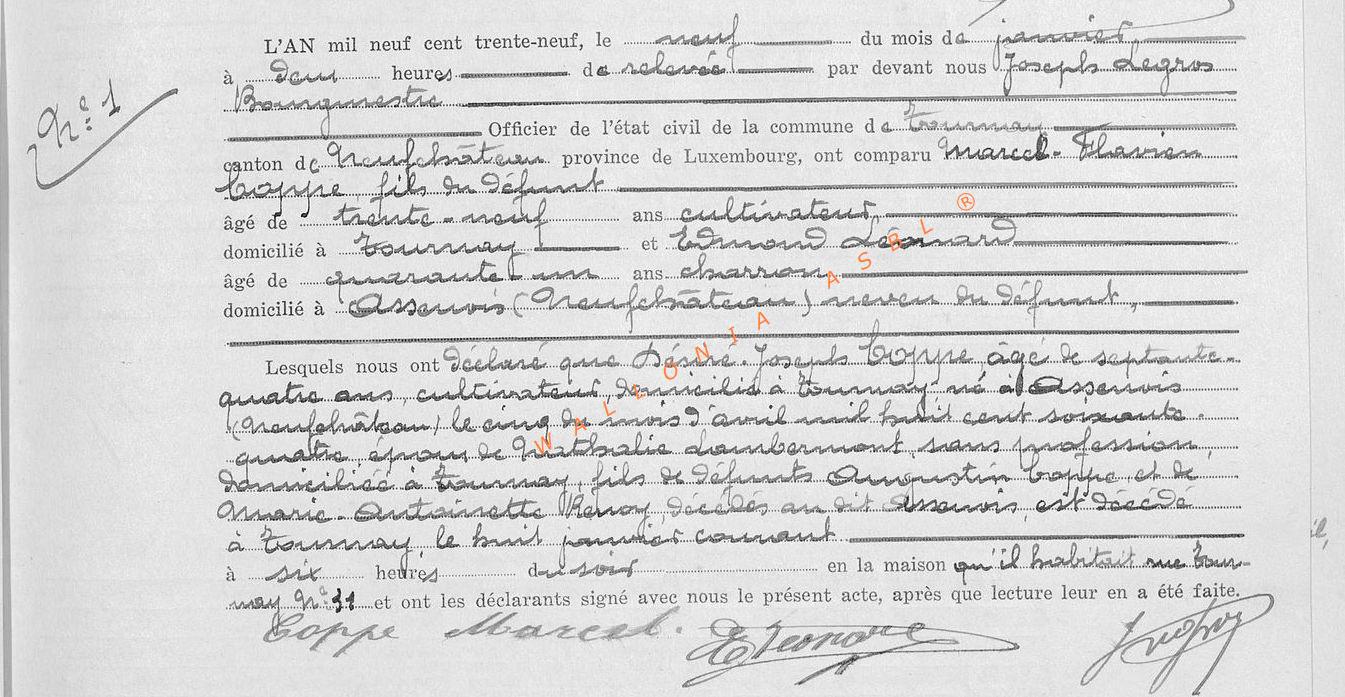 L'AN mil neuf cent trente-neuf, le neuf du mois de janvier,
à deux heures de relevée par devant nous Joseph Legros
Nº 1
Bourgmestre
Officier de l'état civil de la commune de Tournay
canton de Neufchâteau province de Luxembourg, ont comparu Marcel-Flavien
Coppe, fils du défunt
âgé de trente-neuf ans cultivateur,
domicilié à Tournay et Edmond Léonard
âgé de quarante un ans charron,
domicilié à Assenois (Neufchâteau) neveu du défunt,
Lesquels nous ont déclaré que Désiré-Joseph Coppe, âgé de septante-
quatre ans, cultivateur, domicilié à Tournay né à Assenois
(Neufchâteau) le cinq du mois d'avril mil huit cent soixante-
quatre, époux de Nathalie Lambermont, sans profession,
domiciliée à Tournay, fils de défunts Augustin Coppe et de
Marie-Antoinette décédés au dit Assenois, est décédé
à Tournay, le huit janvier courant
à six heures du soir en la maison qu'il habitait rue Tour-
nay Nº 31 et ont les déclarants signé avec nous le présent acte, après que lecture leur en a été faite.
Coppe Marcel. E Leonard
WALLONIA ASBL ®